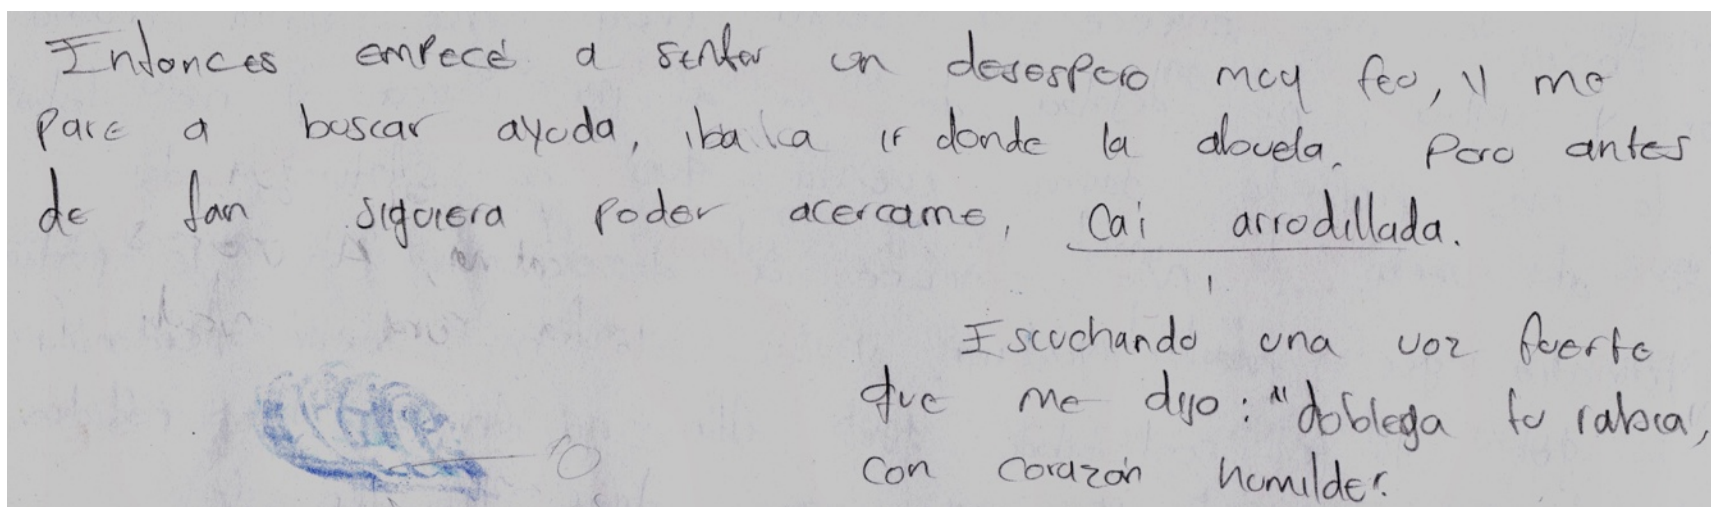 Entonces empecé a sentir un desespero muy feo, y me
pare a buscar ayuda, iba a ir donde la abuela. Pero antes
de tan siquiera poder acercame, cai arrodillada.
Escuchando una voz fuerte
que me dijo: "doblega tu rabia,
con corazón humilde".